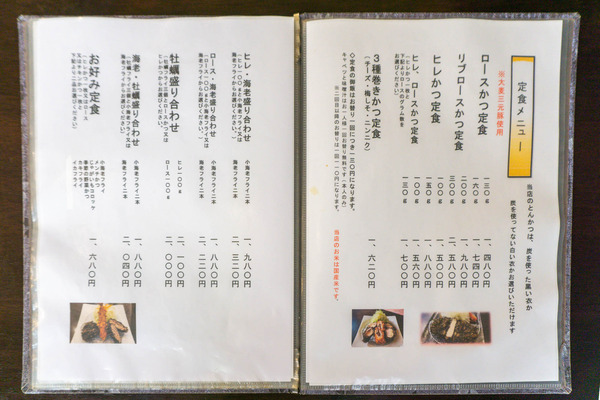 定食メニュー
当店のとんかつは、炭を使った黒い衣か
炭を使ってない白い衣かお選びいただけます
※大麦三元豚使用
ロースかつ定食
一三〇g 一、四八〇円
一六〇g 一、七四〇円
リブロースかつ定食
二〇〇g 一、九八〇円
三〇〇g 二、七八〇円
ヒレかつ定食
一〇〇g 一、五〇〇円
一五〇g 一、八八〇円
ヒレ、ロースかつ定食
一〇〇g 一、五六〇円
一三〇g 一、七〇〇円
3種巻きかつ定食
(チーズ・梅しそ・ニンニク)
一、六二〇円
◇定食の御飯はお替り一回につき一三〇円になります。
キャベツと味噌汁はお一人様一回お替り無料です(本人のみ)
※二回目以降のお替りは一回一一〇円になります。
当店のお米は国産米です。
ヒレ・海老盛り合わせ
小海老フライ二本 一、九八〇円
海老フライ二本 二、三二〇円
ロース・海老盛り合わせ
小海老フライ二本 一、八八〇円
海老フライ二本 二、二二〇円
牡蠣盛り合わせ
ヒレ一〇〇g 二、一〇〇円
ロース一〇〇g 二、〇〇〇円
海老・牡蠣盛り合わせ
小海老フライ二本 一、八八〇円
海老フライ二本 二、〇四〇円
お好み定食
小海老フライ
じゃがいもコロッケ
季節の野菜かつ
カキフライ
一、六八〇円